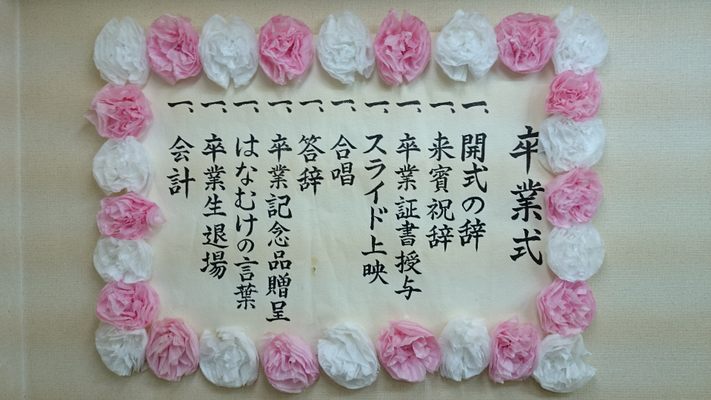 卒業式
一、開式の辞
一、来賓祝辞
一、卒業証書授与
一、スライド上映
一、合唱
一、答辞
一、卒業記念品贈呈
一、はなむけの言葉
一、卒業生退場
一、会計